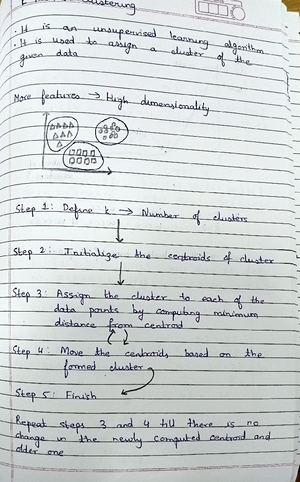 Clustering
• It is an unsupervised learning algorithm
• It is used to assign a cluster of the
given data
More features → High dimensionality
Step 1: Define k → Number of clusters
Step 2: Initialize the centroids of cluster
Step 3: Assign the cluster to each of the
data points by computing minimum
distance from centroid
Step 4: Move the centroids based on the
formed cluster
Step 5: Finish
Repeat steps 3 and 4 till there is no
change in the newly computed centroid and
older one